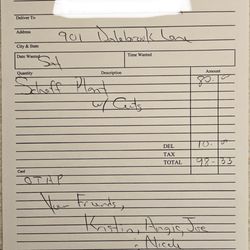 Deliver To
Address 901 Dalebrook Lane
City & State
Date Wanted Sat Time Wanted
Quantity Description Amount
Scheff Plant 80.00
w/ Cuts
DEL 10.00
TAX
TOTAL 98.33
Card
OTAP
Your Friends,
Kristin, Angie, Joe
& Nicole